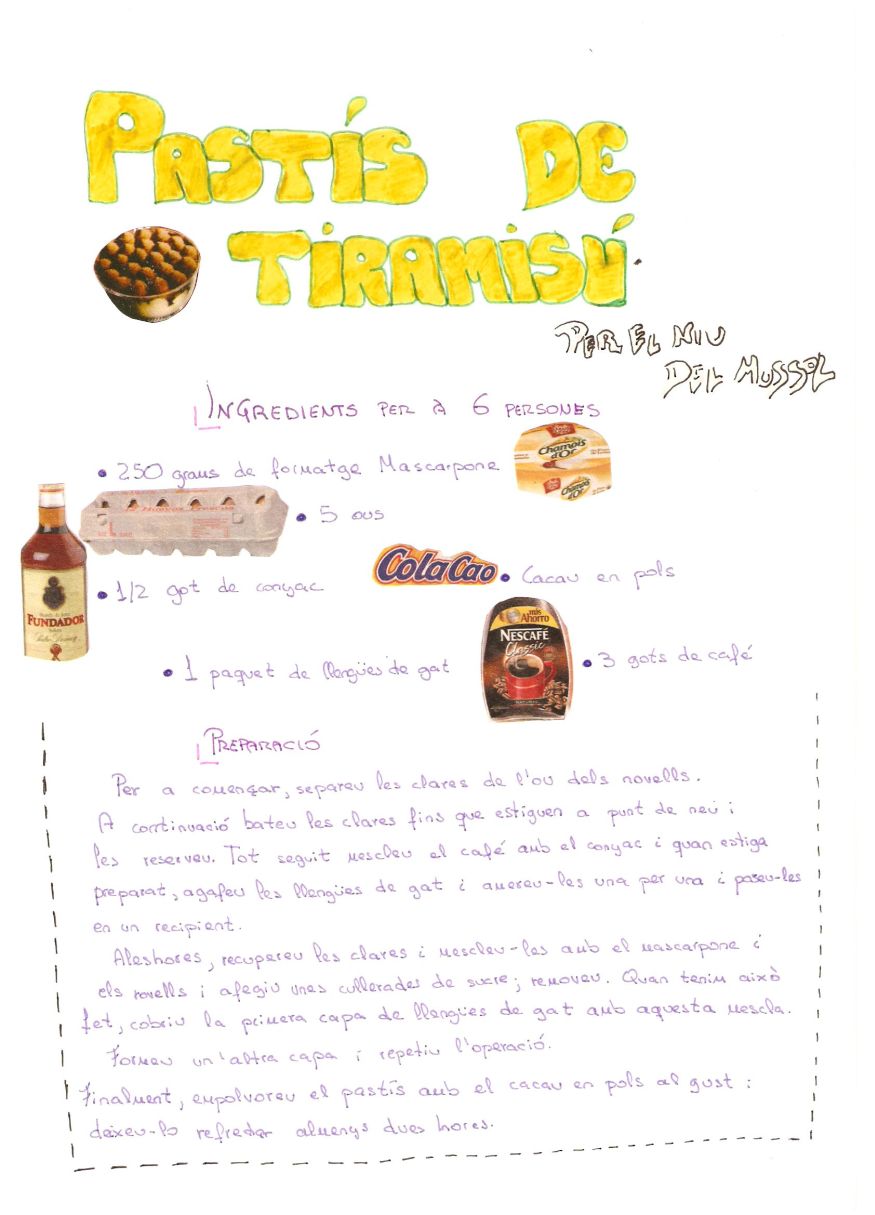 PASTÍS DE
TIRAMISÚ.
PER EL NIU
DEL MUSSOL
INGREDIENTS PER A 6 PERSONES
• 250 grams de formatge Mascarpone
Champis d'Or
Champis d'Or
• 5 ous
• 1/2 got de conyac
FUNDADOR
ColaCao
• Cacau en pols
• 1 paquet de llengües de gat
más Ahorro
NESCAFÉ
Classic
NATURAL
• 3 gots de café
PREPARACIÓ
Per a començar, separeu les clares de l'ou dels rovells.
A continuació bateu les clares fins que estiguen a punt de neu i
les reserveu. Tot seguit mescleu el café amb el conyac i quan estiga
preparat, agafeu les llengües de gat i amereu-les una per una i poseu-les
en un recipient.
Aleshores, recupereu les clares i mescleu-les amb el mascarpone i
els rovells i afegiu unes cullerades de sucre; removeu. Quan tenim això
fet, cobriu la primera capa de llengües de gat amb aquesta mescla.
Formeu un'altra capa i repetiu l'operació.
Finalment, empolvoreu el pastís amb el cacau en pols al gust i
deixeu-lo refredar almenys dues hores.